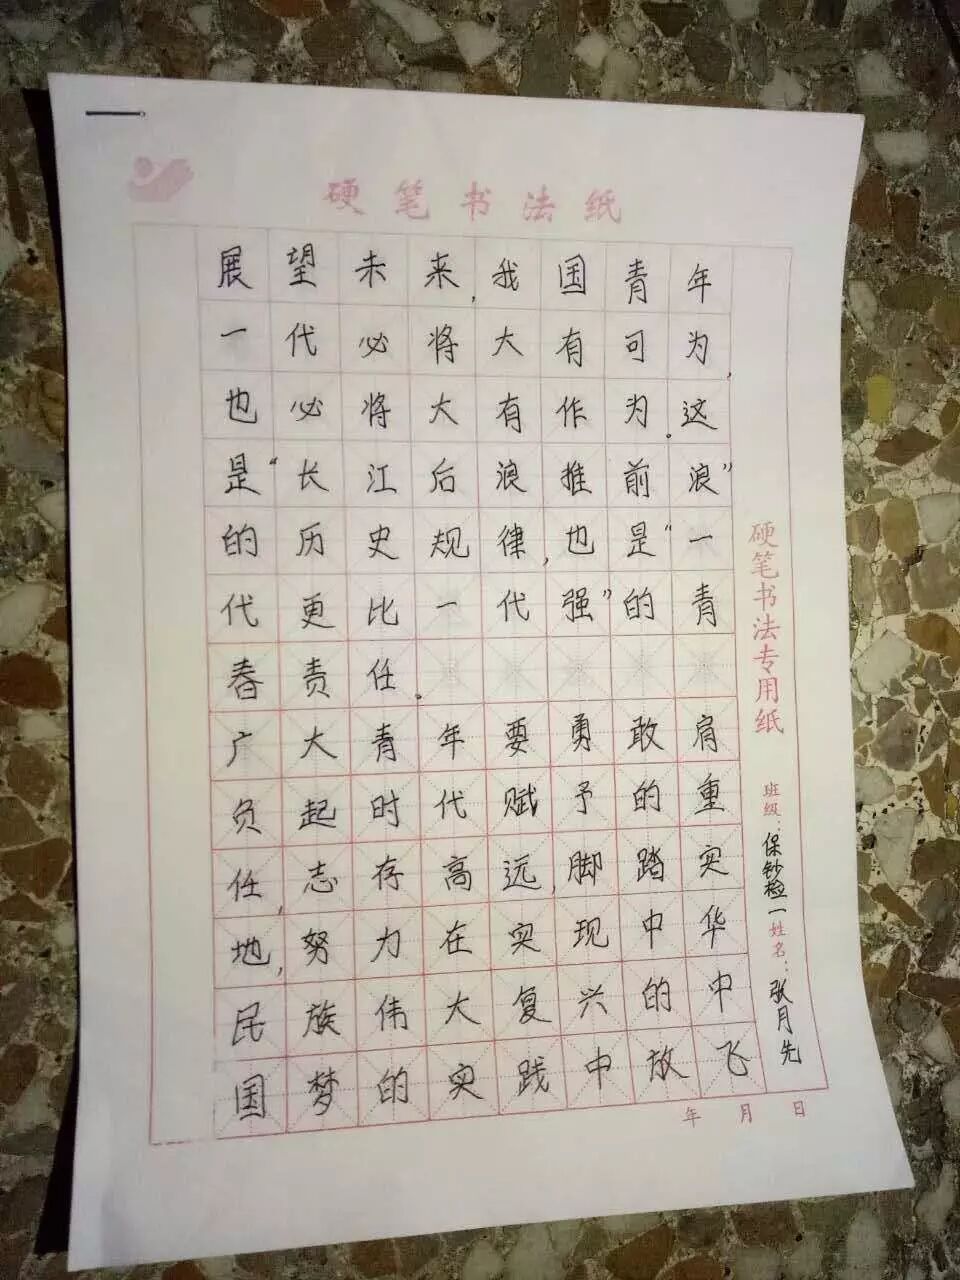 硬笔书法纸
展望未来,我国青年
一代必将大有可为,
也必将大有作为。这
是“长江后浪推前浪”
的历史规律,也是“一
代更比一代强”的青
春责任。
广大青年要勇敢肩
负起时代赋予的重
任,志存高远,脚踏实
地,努力在实现中华
民族伟大复兴的中
国梦的实践中放飞
硬笔书法专用纸
班级:保钞检一姓名:张月先
年 月 日